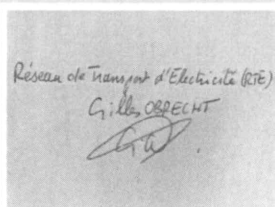 Réseau de Transport d'Electricité (RTE)
Gilles OBRECHT